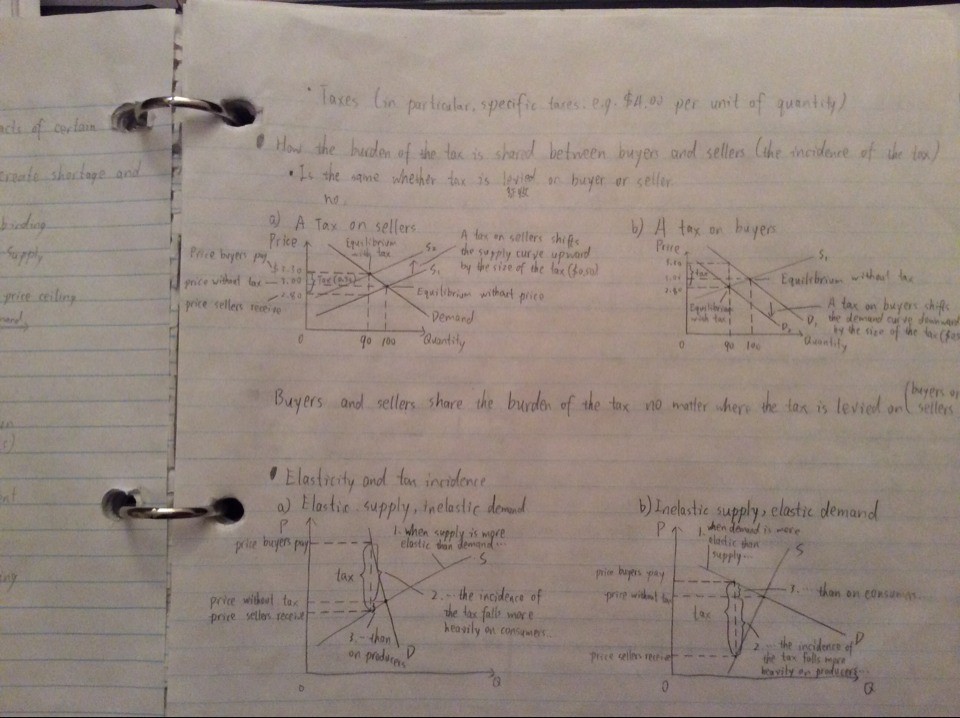 acts of certain
create shortage and
binding
supply
price ceiling
• Taxes (in particular, specific taxes. e.g. $4.00 per unit of quantity)
• How the burden of the tax is shared between buyers and sellers (the incidence of the tax)
• Is the same whether tax is levied on buyer or seller.
no.
a) A Tax on sellers
Price
Equilibrium
with tax
S2
S1
A tax on sellers shifts
the supply curve upward
by the size of the tax ($0.50)
Price buyers pay $3.30
price without tax 3.00
price sellers receive 2.80
Tax
Equilibrium without price
Demand
0
90 100
Quantity
b) A tax on buyers
Price
S1
tax
2.80
Equilibrium without tax
Equilibrium
with tax
D1
D2
A tax on buyers shifts
the demand curve downward
by the size of the tax
0
90 100
Quantity
Buyers and sellers share the burden of the tax no matter where the tax is levied on (buyers or
sellers
• Elasticity and tax incidence
a) Elastic supply, inelastic demand
P
1. When supply is more
elastic than demand...
S
price buyers pay
tax
price without tax
price sellers receive
2. ... the incidence of
the tax falls more
heavily on consumers..
3. - than
on producers
D
0
Q
b) Inelastic supply, elastic demand
P
1. when demand is more
elastic than
supply...
S
price buyers pay
price without tax
3. ... than on consumers..
tax
price sellers receive
D
2. ... the incidence of
the tax falls more
heavily on producers...
0
Q